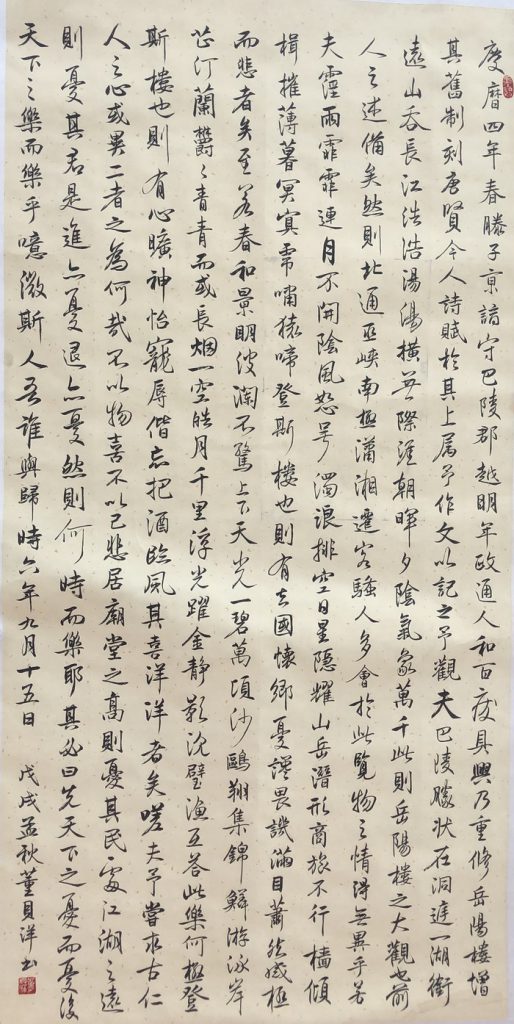 慶曆四年春滕子京謫守巴陵郡越明年政通人和百廢具興乃重修岳陽樓增
其舊制刻唐賢今人詩賦於其上属予作文以記之予觀夫巴陵勝狀在洞庭一湖銜
遠山吞長江浩浩湯湯橫無際涯朝暉夕陰氣象萬千此則岳陽樓之大觀也前
人之述備矣然則北通巫峽南極瀟湘遷客騷人多會於此覽物之情得無異乎若
夫霪雨霏霏連月不開陰風怒号濁浪排空日星隱耀山岳潛形商旅不行檣傾
楫摧薄暮冥冥虎嘯猿啼登斯樓也則有去國懷鄉憂讒畏譏滿目蕭然感極
而悲者矣至若春和景明波瀾不驚上下天光一碧萬頃沙鷗翔集錦鱗游泳岸
芷汀蘭欝々青青而或長烟一空皓月千里浮光躍金静影沉璧漁互答此樂何極登
斯樓也則有心曠神怡寵辱偕忘把酒臨風其喜洋洋者矣嗟夫予嘗求古仁
人之心或異二者之為何哉不以物喜不以己悲居廟堂之高則憂其民處江湖之遠
則憂其君是進亦憂退亦憂然則何時而樂耶其必曰先天下之憂而憂後
天下之樂而樂乎噫微斯人吾誰與歸時六年九月十五日 戊戌孟秋董貝洋书